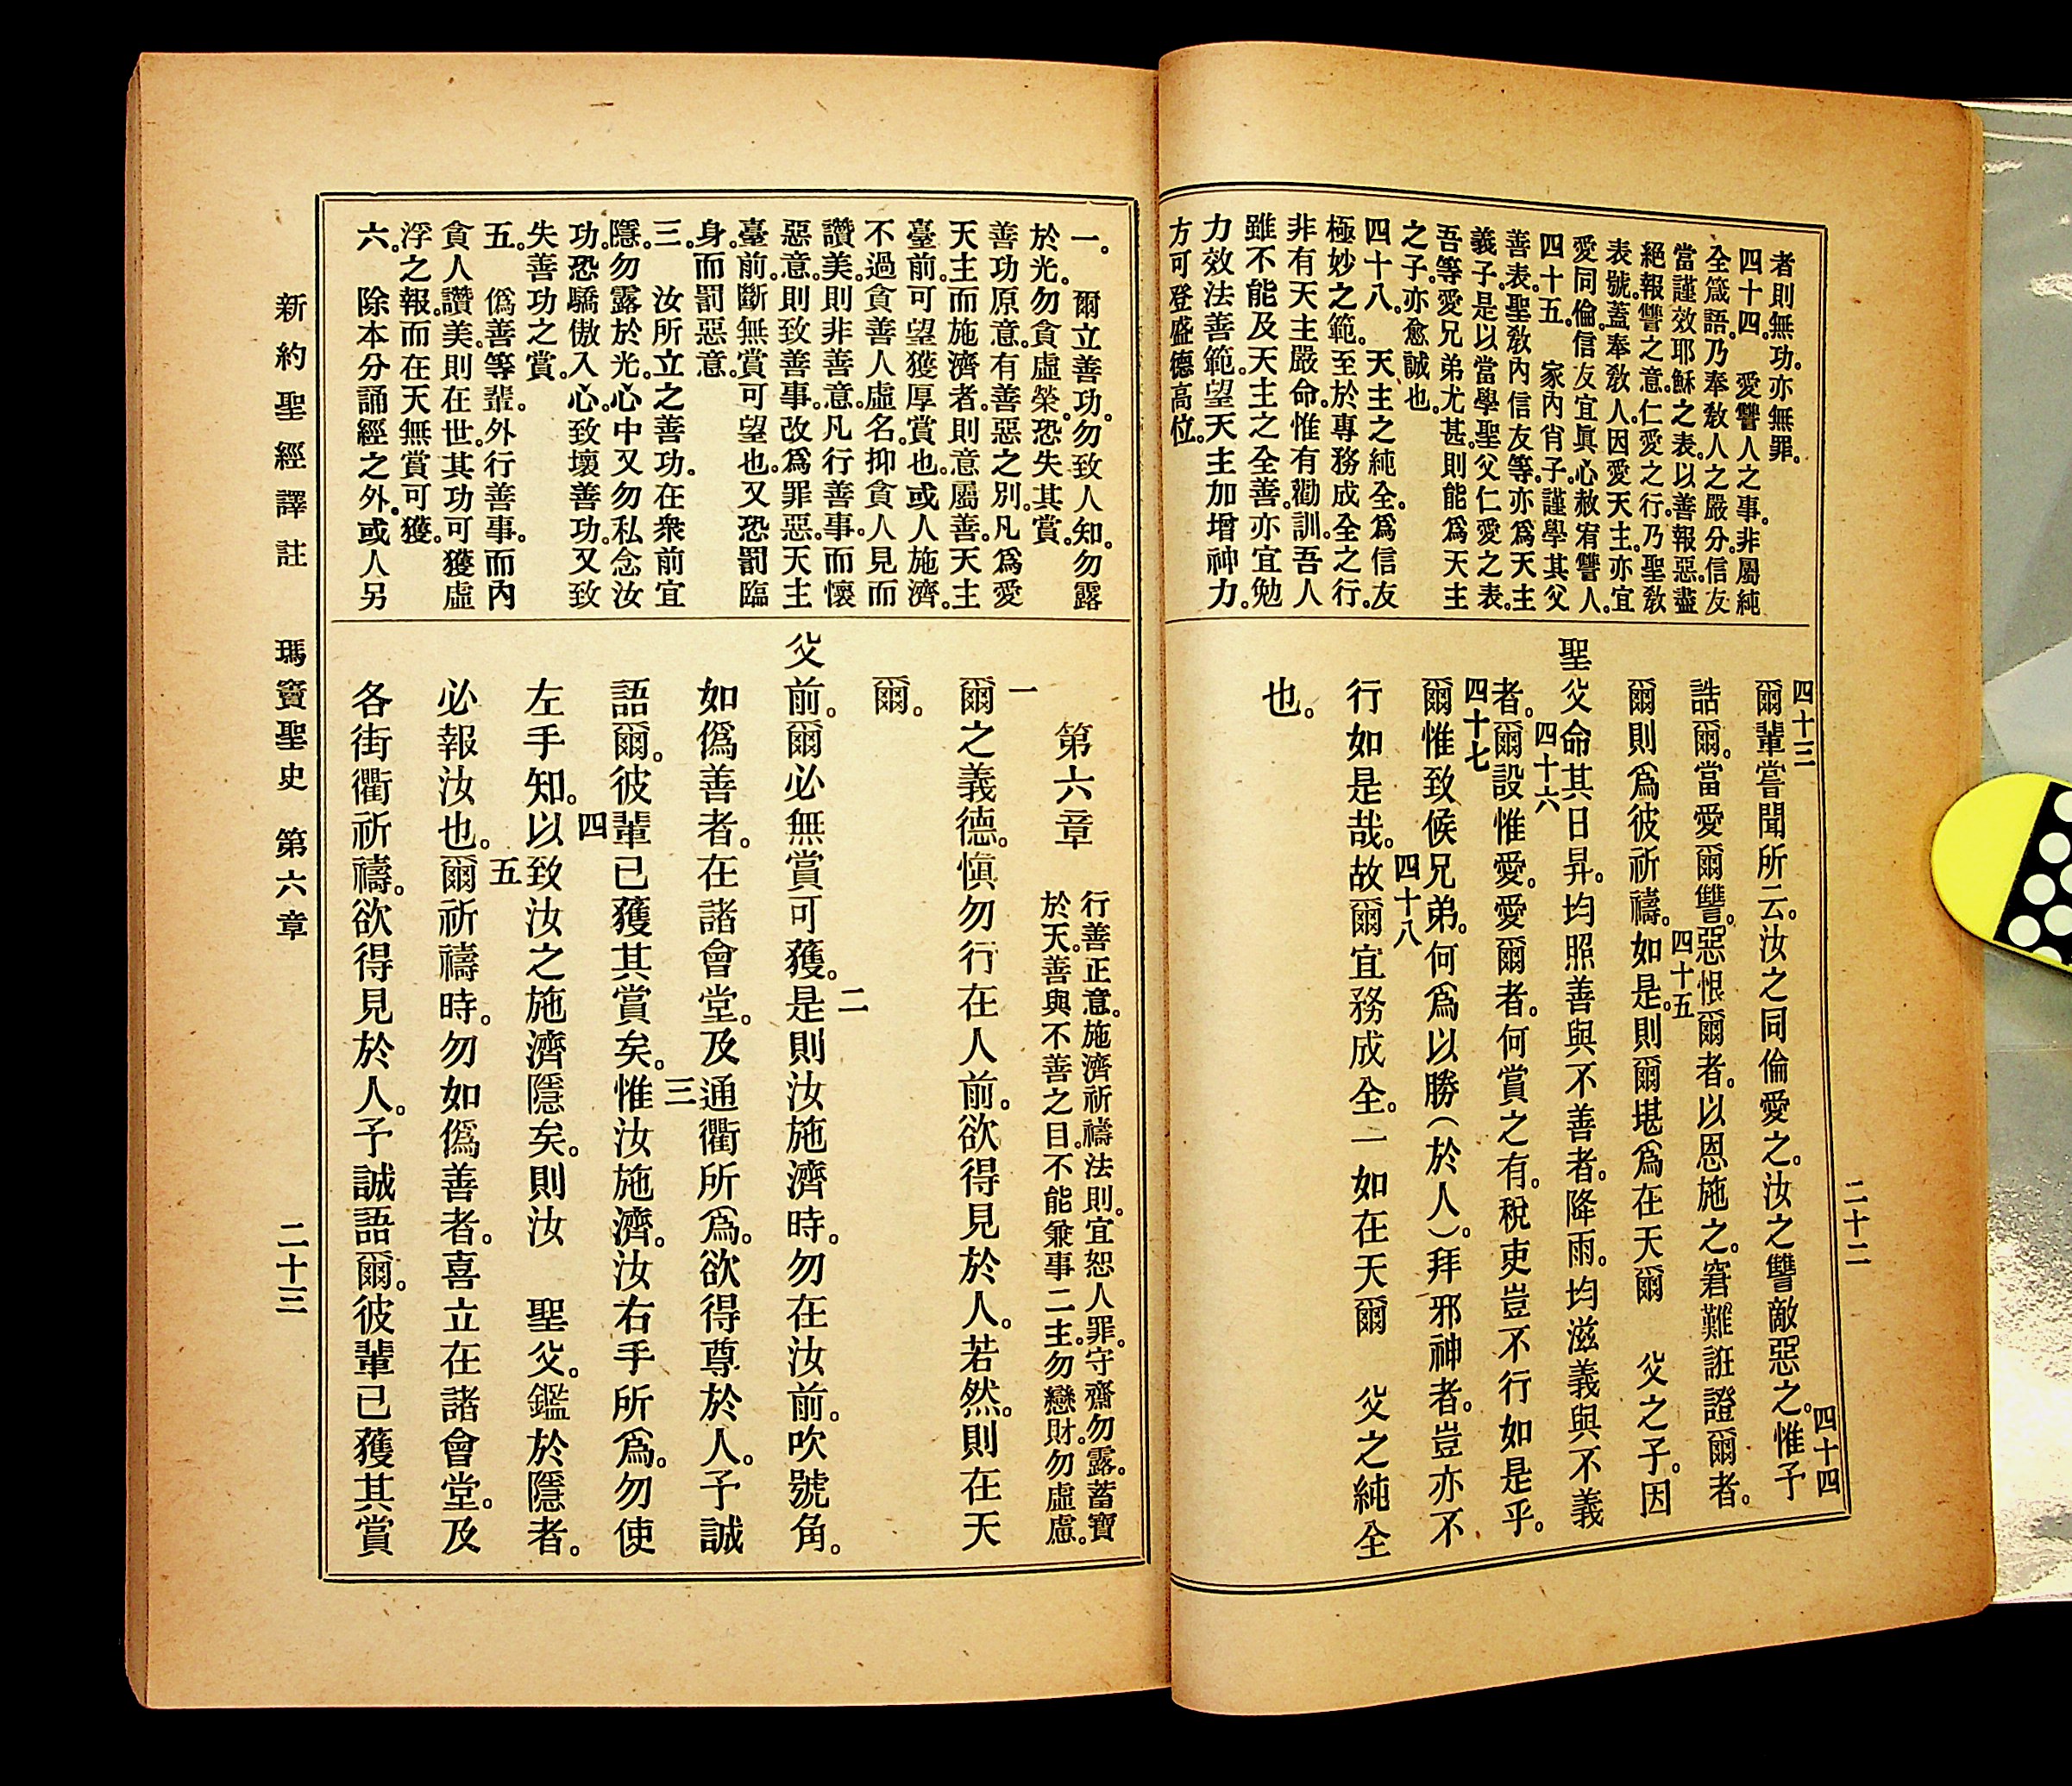 者則無功。亦無罪。
四十四。愛讐人之事。非屬純
全箴語。乃奉敎人之嚴分。信友
當謹效耶穌之表。以善報惡。盡
絕報讐之意。仁愛之行。乃聖敎
表號。蓋奉敎人。因愛天主。亦宜
愛同倫。信友宜眞心赦宥讐人。
四十五。家內肖子。謹學其父
善表。聖敎內信友等。亦爲天主
義子。是以當學聖父仁愛之表。
吾等愛兄弟尤甚。則能爲天主
之子。亦愈誠也。
四十八。天主之純全。爲信友
極妙之範。至於專務成全之行。
非有天主嚴命。惟有勸訓。吾人
雖不能及天主之全善。亦宜勉
力效法善範。望天主加增神力。
方可登盛德高位。
四十三
爾輩嘗聞所云。汝之同倫愛之。汝之讐敵惡之。惟予
四十四
誥爾。當愛爾讐。惡恨爾者。以恩施之。窘難誑證爾者。
爾則爲彼祈禱。如是。則爾堪爲在天爾 父之子。因
四十五
聖父命其日昇。均照善與不善者。降雨。均滋義與不義
者。爾設惟愛。愛爾者。何賞之有。稅吏豈不行如是乎。
四十六
爾惟致候兄弟。何爲以勝(於人)。拜邪神者。豈亦不
四十七
行如是哉。故爾宜務成全。一如在天爾 父之純全
四十八
也。
二十二
一。爾立善功。勿致人知。勿露
於光。勿貪虛榮。恐失其賞。
善功原意。有善惡之別。凡爲愛
天主而施濟者。則意屬善。天主
臺前。可望獲厚賞也。或人施濟。
不過貪善人虛名。抑貪人見而
讚美。則非善意。凡行善事。而懷
惡意。則致善事。改爲罪惡。天主
臺前。斷無賞可望也。又恐罰臨
身。而罰惡意。
三。汝所立之善功。在衆前宜
隱。勿露於光。心中又勿私念汝
功。恐驕傲入心。致壞善功。又致
失善功之賞。
五。僞善等輩。外行善事。而內
貪人讚美。則在世。其功可獲虛
浮之報。而在天無賞可獲。
六。除本分誦經之外。或人另
第六章
行善正意。施濟祈禱法則。宜恕人罪。守齋勿露。蓄寶
於天。善與不善之目。不能兼事二主。勿戀財。勿虛慮。
一
爾之義德。愼勿行在人前。欲得見於人。若然。則在天
爾。
父前。爾必無賞可獲。是則汝施濟時。勿在汝前。吹號角。
二
如僞善者。在諸會堂。及通衢所爲。欲得尊於人。予誠
語爾。彼輩已獲其賞矣。惟汝施濟。汝右手所爲。勿使
三
左手知。以致汝之施濟隱矣。則汝 聖父。鑑於隱者。
四
必報汝也。爾祈禱時。勿如僞善者。喜立在諸會堂。及
五
各街衢祈禱。欲得見於人。予誠語爾。彼輩已獲其賞
新約聖經譯註 瑪竇聖史 第六章 二十三